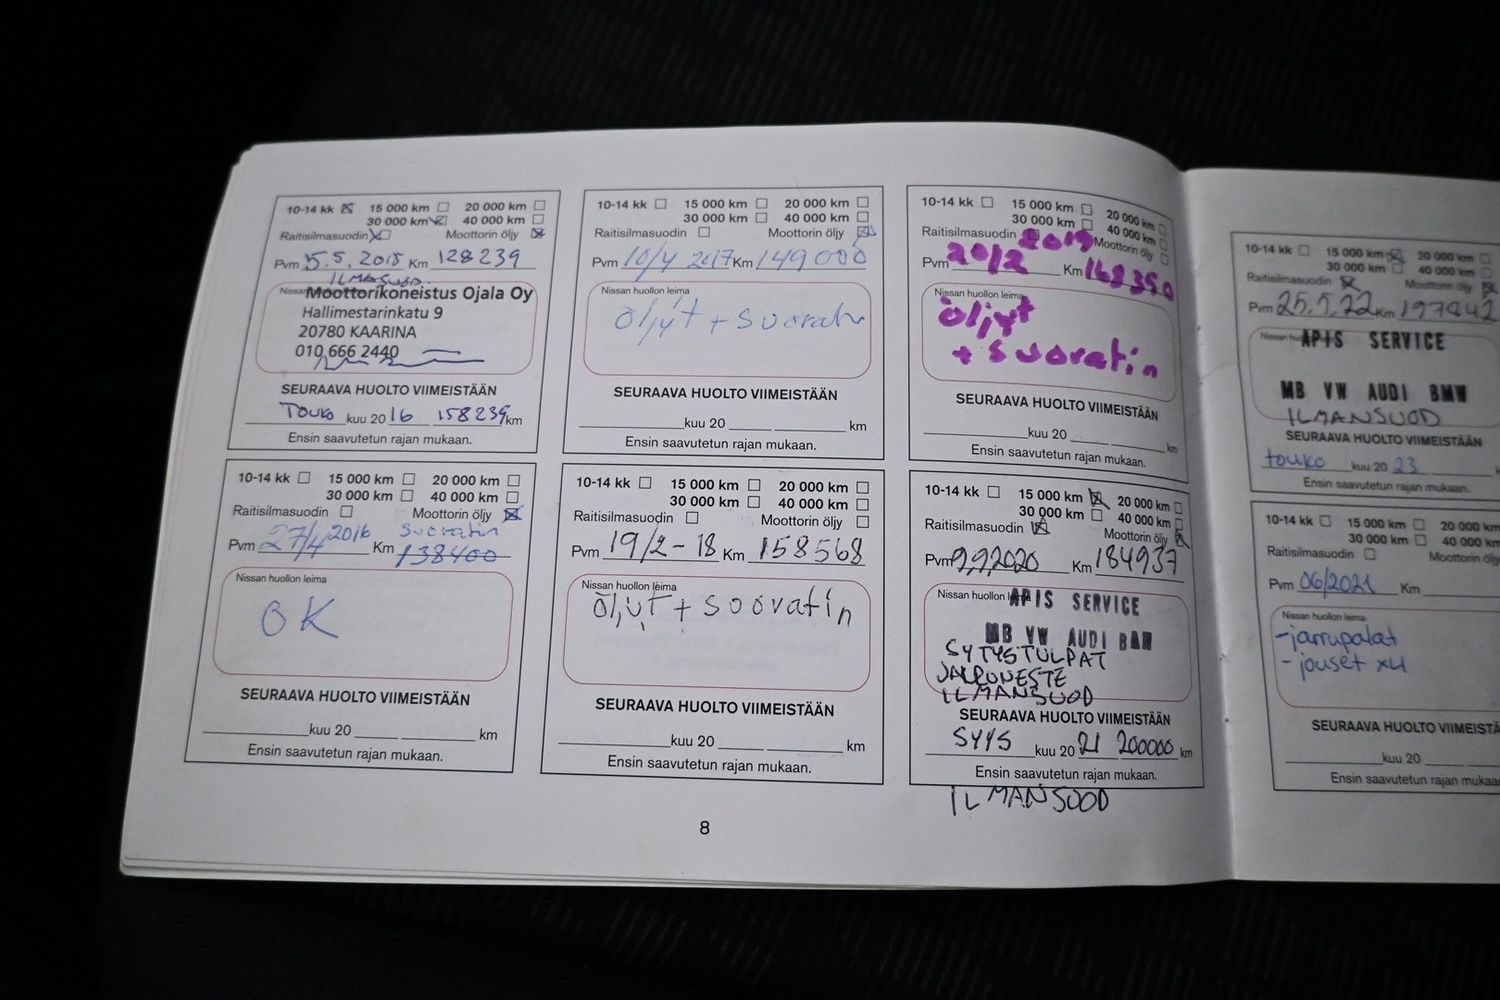 10-14 kk 15 000 km 20 000 km
30 000 km 40 000 km
Raitisilmasuodin Moottorin öljy
Pvm 5.5.2015 Km 128239
ILMASUOD.
Moottorikoneistus Ojala Oy
Hallimestarinkatu 9
20780 KAARINA
010 666 2440
SEURAAVA HUOLTO VIIMEISTÄÄN
TOUKO kuu 20 16 158239 km
Ensin saavutetun rajan mukaan.
10-14 kk 15 000 km 20 000 km
30 000 km 40 000 km
Raitisilmasuodin Moottorin öljy
suoratin
Pvm 27/4 2016 Km 138400
Nissan huollon leima
OK
SEURAAVA HUOLTO VIIMEISTÄÄN
kuu 20 km
Ensin saavutetun rajan mukaan.
10-14 kk 15 000 km 20 000 km
30 000 km 40 000 km
Raitisilmasuodin Moottorin öljy
Pvm 10/4 2017 Km 149000
Nissan huollon leima
öljyt + suoratin
SEURAAVA HUOLTO VIIMEISTÄÄN
kuu 20 km
Ensin saavutetun rajan mukaan.
10-14 kk 15 000 km 20 000 km
30 000 km 40 000 km
Raitisilmasuodin Moottorin öljy
Pvm 19/2-18 Km 158568
Nissan huollon leima
öljyt + soovatin
SEURAAVA HUOLTO VIIMEISTÄÄN
kuu 20 km
Ensin saavutetun rajan mukaan.
10-14 kk 15 000 km 20 000 km
30 000 km 40 000 km
Raitisilmasuodin Moottorin öljy
Pvm 20/2 2019 Km 168350
Nissan huollon leima
öljyt
+ suoratin
SEURAAVA HUOLTO VIIMEISTÄÄN
kuu 20 km
Ensin saavutetun rajan mukaan.
10-14 kk 15 000 km 20 000 km
30 000 km 40 000 km
Raitisilmasuodin Moottorin öljy
Pvm 9.9.2020 Km 184937
Nissan huollon leima
APIS SERVICE
MB VW AUDI BMW
SYTYSTULPAT
JARRUNESTE
ILMANSUOD
SEURAAVA HUOLTO VIIMEISTÄÄN
SYYS kuu 20 21 200000 km
Ensin saavutetun rajan mukaan.
ILMANSUOD
8
10-14 kk 15 000 km 20 000 km
30 000 km 40 000 km
Raitisilmasuodin Moottorin öljy
Pvm 25.5.22 Km 197842
APIS SERVICE
MB VW AUDI BMW
ILMANSUOD
SEURAAVA HUOLTO VIIMEISTÄÄN
touko kuu 20 23
Ensin saavutetun rajan mukaan.
10-14 kk 15 000 km 20 000
30 000 km 40 000
Raitisilmasuodin Moottorin öljy
Pvm 06/2021 Km
Nissan huollon leima
- jarrupalat
- jouset x4
SEURAAVA HUOLTO VIIMEISTÄ
kuu 20
Ensin saavutetun rajan mukaa